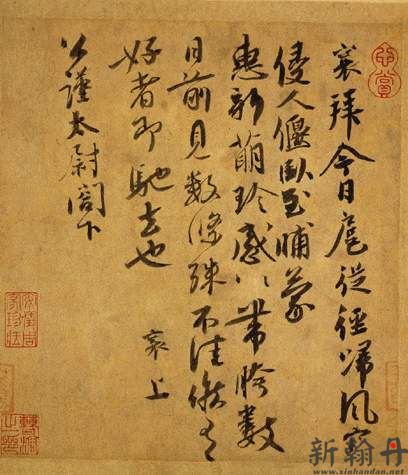 襄拜今日扈從徑歸風寒
侵人偃臥至晡蒙
惠新萌珍感〻帶胯數
日前見數條殊不佳候有
好者即馳去也 襄上
公謹太尉閣下
心賞
安儀周家珍藏
新翰丹
www.xinhandan.net